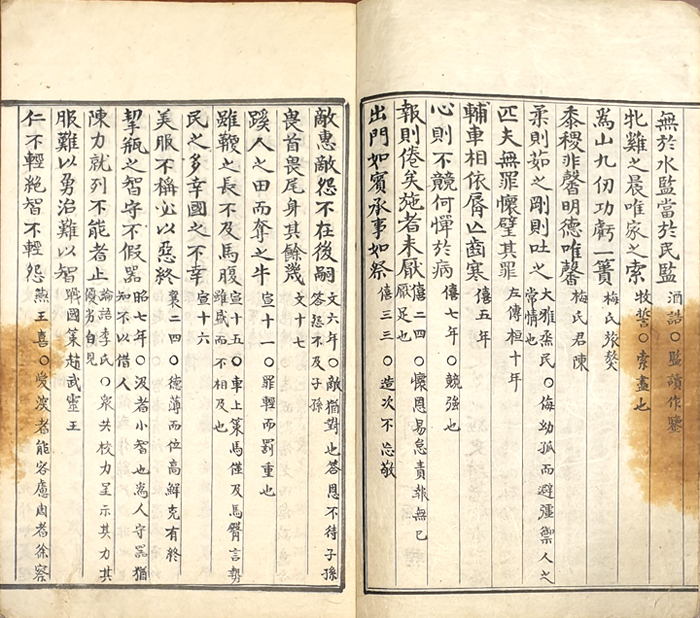 無於水監當於民監 酒誥○監讀作鑒
牝雞之晨唯家之索 牧誓○索盡也
爲山九仞功虧一簣 梅氏旅獒
黍稷非馨明德唯馨 梅氏君陳
柔則茹之剛則吐之 大雅烝民○侮幼孤而避彊禦人之常情也
匹夫無罪懷璧其罪 左傳桓十年
輔車相依脣亾齒寒 僖五年
心則不競何憚於病 僖七年○競強也
報則倦矣施者未厭 僖二四○懷恩易怠責報無已厭足也
出門如賓承事如祭 僖三三○造次不忘敬
敵惠敵怨不在後嗣 文六年○敵猶對也答恩不待子孫答怨不及子孫
畏首畏尾身其餘幾 文十七
蹊人之田而奪之牛 宣十一○罪輕而罰重也
雖鞭之長不及馬腹 宣十五○車上策馬僅及馬臀言勢雖盛而不相及也
民之多幸國之不幸 宣十六
美服不稱必以惡終 襄二四○德薄而位高鮮克有終
挈瓶之智守不假器 昭七年○汲者小智也爲人守器猶知不以借人
陳力就列不能者止 論語季氏○眾共校力呈示其力其優劣自見
服難以勇治難以智 戰國策趙武靈王
仁不輕絕智不輕怨 燕王喜○愛深者能容慮周者徐察